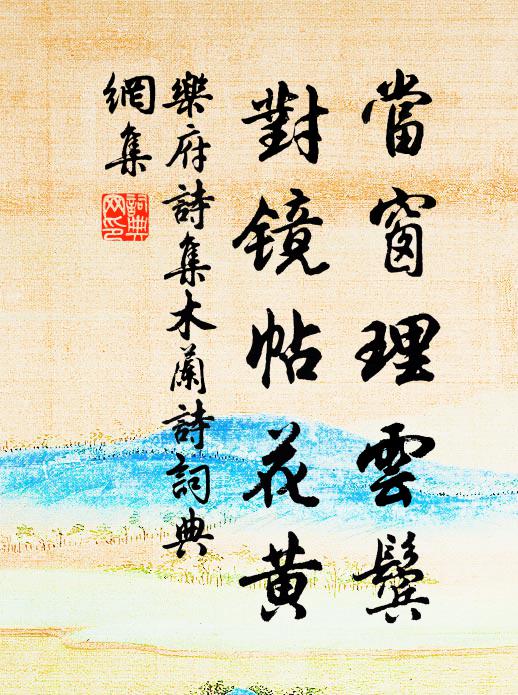 當窗理雲鬓
對鏡帖花黄
樂府詩集木蘭詩詞典
網集
詞典
网印